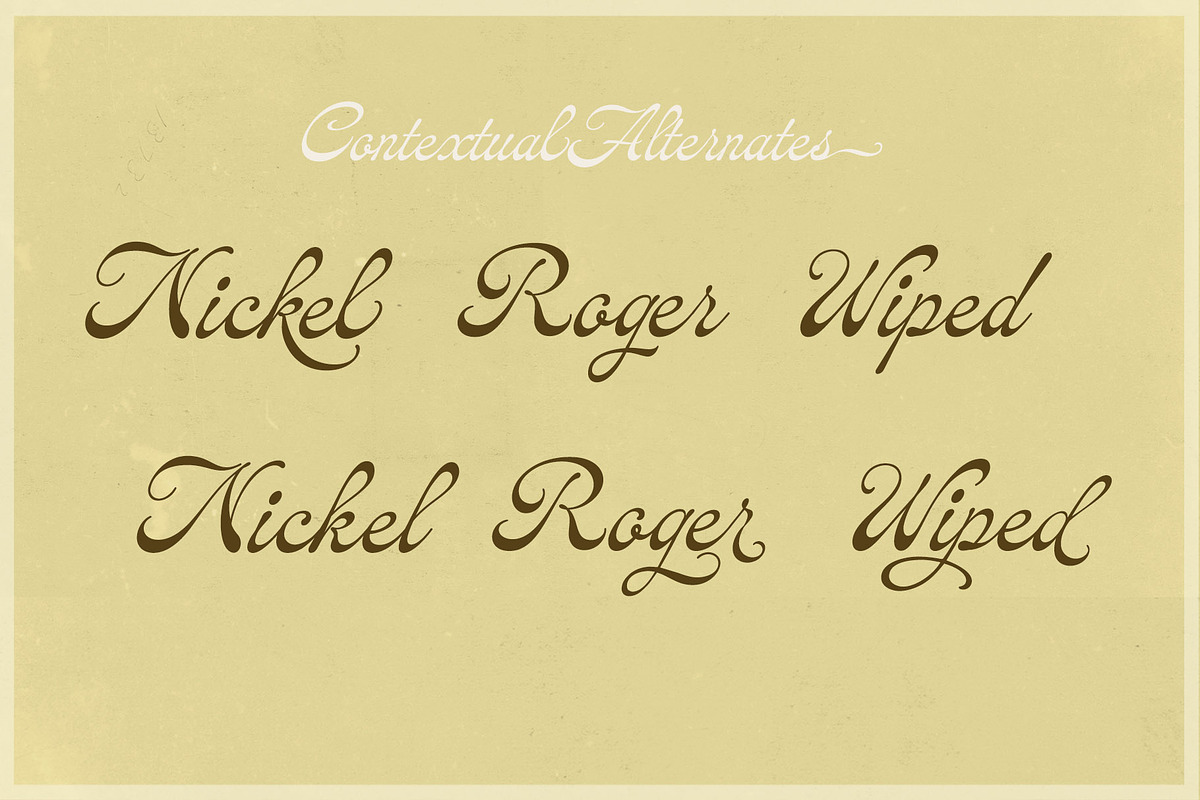 Contextual Alternates
Nickel Roger Wiped
Nickel Roger Wiped